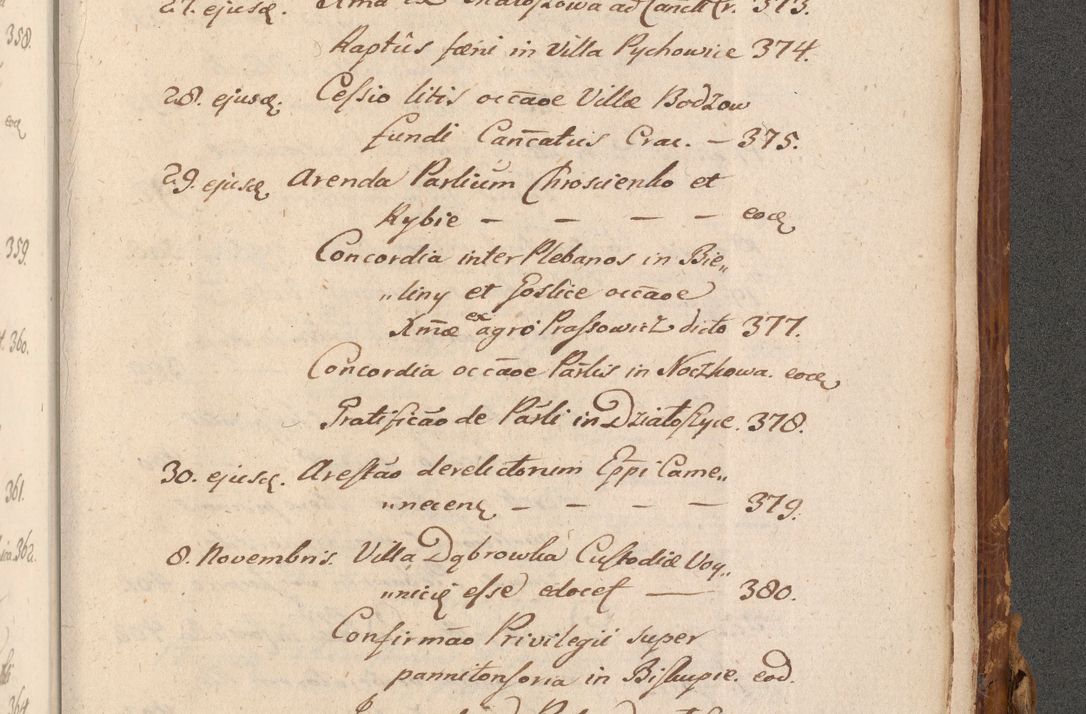 358.
eod
359.
360.
361.
362.
364
27. ejusd. Xma ex 373.
Raptûs fœni in Villa Pychowice 374.
28. ejusd. Cessio litis occãoe Villæ Bodzow
fundi Cañcatus Crac. – 375.
29. ejusd. Arenda Partium Chroscienko et
Rybie – – – – eod
Concordia inter Plebanos in Bie„
„liny et Goslice occãoe
Xmæ ex agro Prassowicz dicto 377.
Concordia occãoe Partis in Noczkowa. eod
Pratificão de Parti in Dziatoszyce. 378.
30. ejusd. Arestão derelictorum Eppi Came„
„necens – – – – 379.
8. Novembris. Villa Dąbrowka Custodiæ Voy„
„nicij esse edocet — 380.
Confirmão Privilegii super
pannitonsoria in Biskupie. eod.